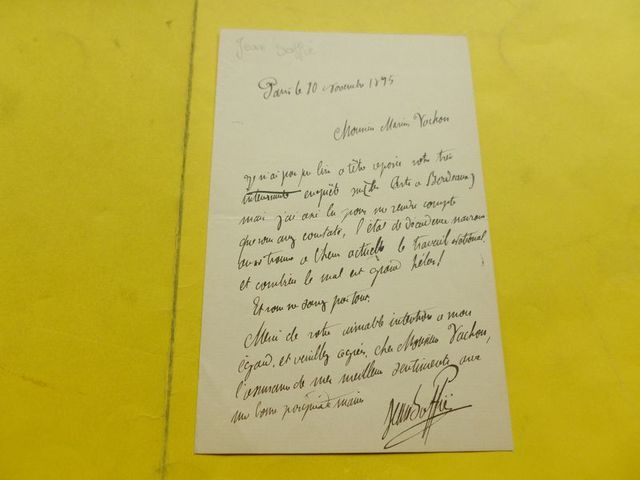 Jean Baffier
Paris le 10 novembre 1895
Monsieur Marius Vachon
Je n'ai pas pu lire a tête reposée votre très
interessante enquête sur (les Arts a Bordeaux)
mais j'ai assez lu pour me rendre compte
que vous avez constaté, l'état de décadence
a l'heure actuelle le travail national
et combien le mal est grand hélas!
Et vous ne savez pas tout.
Merci de votre aimable intention a mon
égard, et veuillez agréer, cher Monsieur Vachon,
l'assurance de mes meilleurs sentiments avec
une bonne poignée de main
Jean Baffier